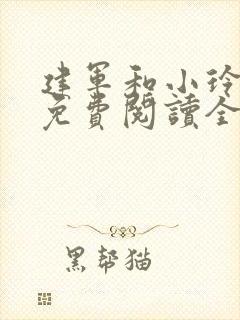 建军和小玲
免費閱讀全
黑帮猫